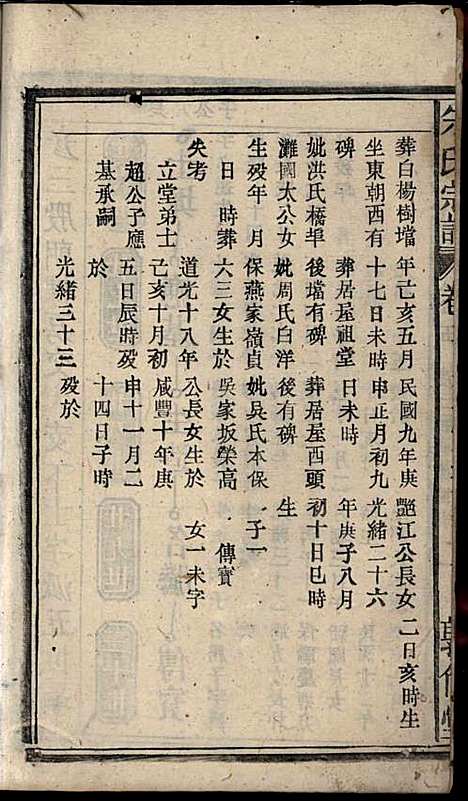 氏宗譜 卷
葬白楊樹壋 年己亥五月 民國九年庚 艷江公長女 二日亥時生
坐東朝西有 十七日未時 申正月初九 光緒二十六
碑 葬居屋祖堂 日未時 年庚子八月
妣洪氏橋埠 後壋有碑 葬居屋西頭 初十日巳時
灘國太公女 妣周氏白洋 後有碑 生
生歿年 月 保燕家嶺貞 妣吳氏本保 子一
日 時葬 六三女生於 吳家坂榮高 傳寶
失考 道光十八年 公長女生於 女一未字
立堂弟士 己亥十月初 咸豐十年庚
超公子應 五日辰時歿 申十一月二
基承嗣 於 十四日子時
光緒三十三 歿於